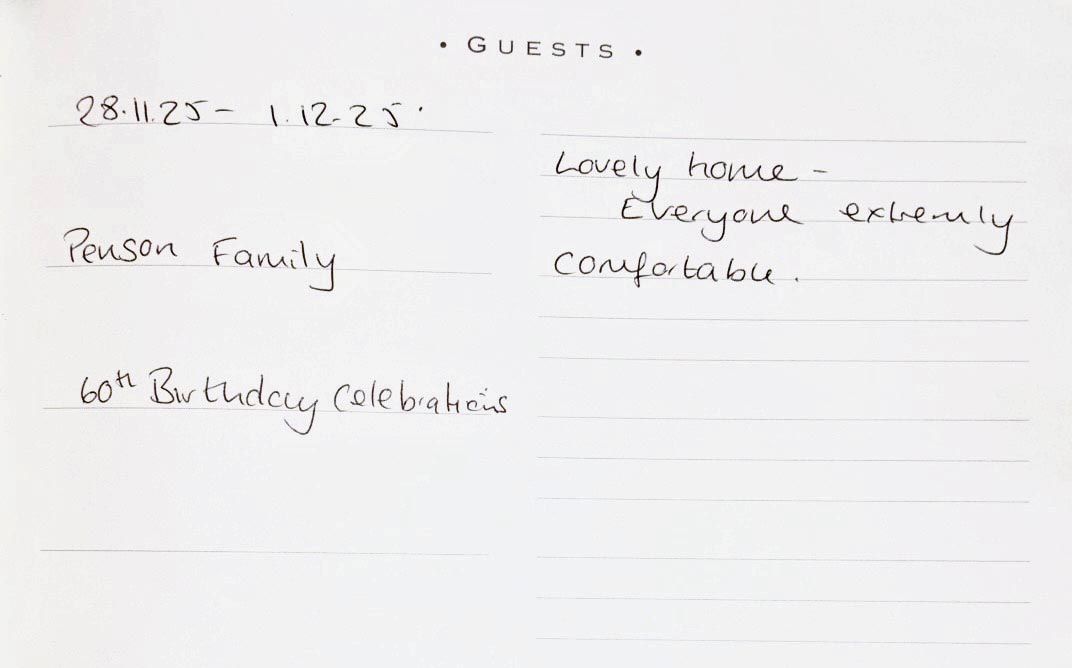 • GUESTS •
28.11.25 - 1.12.25.
Penson Family
60th Birthday Celebrations
Lovely home -
Everyone extremly
comfortable.